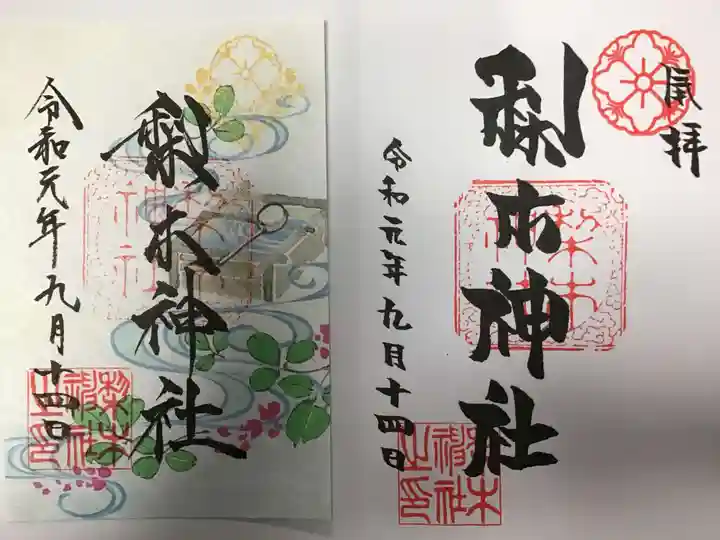 奉拝
梨木神社
令和元年九月十四日
梨木神社
令和元年九月十四日
梨木神社
梨木神社
梨木神社之印
梨木神社之印